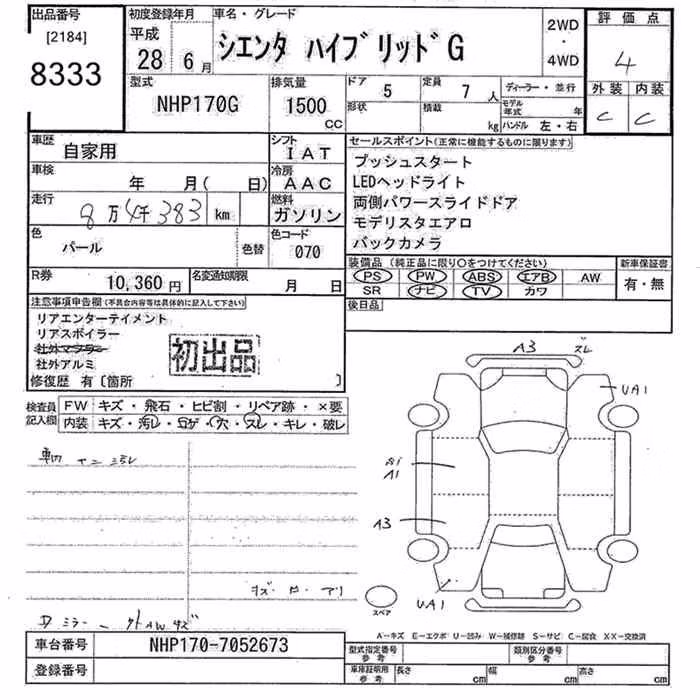 出品番号
[2184]
8333
初度登録年月
平成
28 6月
車名・グレード
シエンタ ハイブリッドG
2WD
・
4WD
評価点
4
外装 内装
C C
型式
NHP170G
排気量
1500
CC
ドア 5
定員 7人
形状
積載 kg
ディーラー・並行
モデル年式 年
ハンドル 左・右
車歴
自家用
シフト
IAT
車検
年 月( 日)
冷房
AAC
走行
8万4千383 km
燃料
ガソリン
色
パール
色替
色コード
070
R券
10,360円
名変通知期限
月 日
セールスポイント(正常に機能するものに限ります)
プッシュスタート
LEDヘッドライト
両側パワースライドドア
モデリスタエアロ
バックカメラ
装備品(純正品に限り○をつけてください)
PS PW ABS エアB AW
SR ナビ TV カワ
新車保証書
有・無
後日品
注意事項申告欄(不具合内容等は具体的に記入して下さい)
リアエンターテイメント
リアスポイラー
社外マフラー
社外アルミ
修復歴 有〔箇所 〕
初出品
検査員
記入欄
FW キズ・飛石・ヒビ割・リペア跡・×要
内装 キズ・汚レ・コゲ・穴・スレ・キレ・破レ
A3 スレ
UA1
A1
A3
UA1
スペア
A-キズ E-エクボ U-凹み W-補修跡 S-サビ C-腐食 XX-交換済
車台番号
NHP170-7052673
登録番号
型式指定番号
参考
類別区分番号
参考
車庫証明用
参考
長さ cm 幅 cm 高さ cm